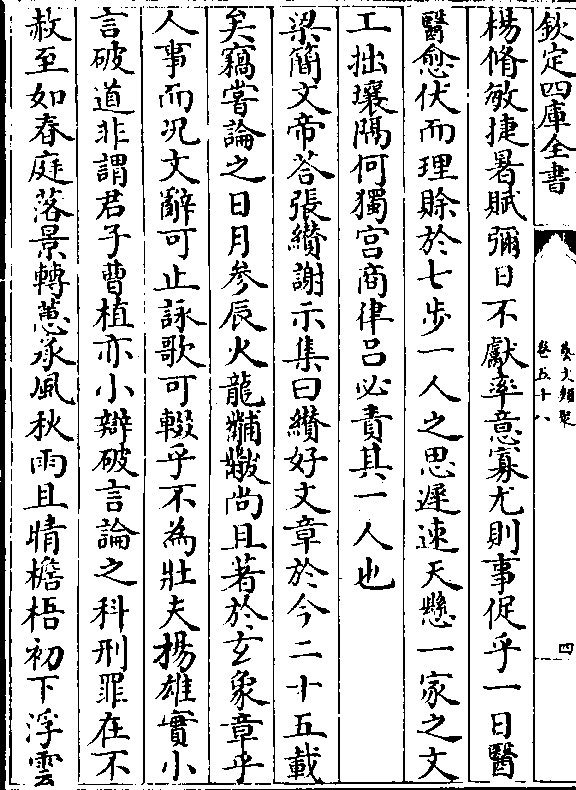 欽定四庫全書
藝文類聚
卷五十八
四
楊脩敏捷暑賦彌日不獻率意寡尤則事促乎一日醫
醫愈伏而理賒於七步一人之思遲速天懸一家之文
工拙壤隔何獨宮商律呂必責其一人也
梁簡文帝答張纘謝示集曰纘好文章於今二十五載
矣竊嘗論之日月參辰火龍黼黻尚且著於玄象章乎
人事而况文辭可止詠歌可輟乎不為壯夫揚雄實小
言破道非謂君子曹植亦小辯破言論之科刑罪在不
赦至如春庭落景轉蕙承風秋雨且晴檐梧初下浮雲